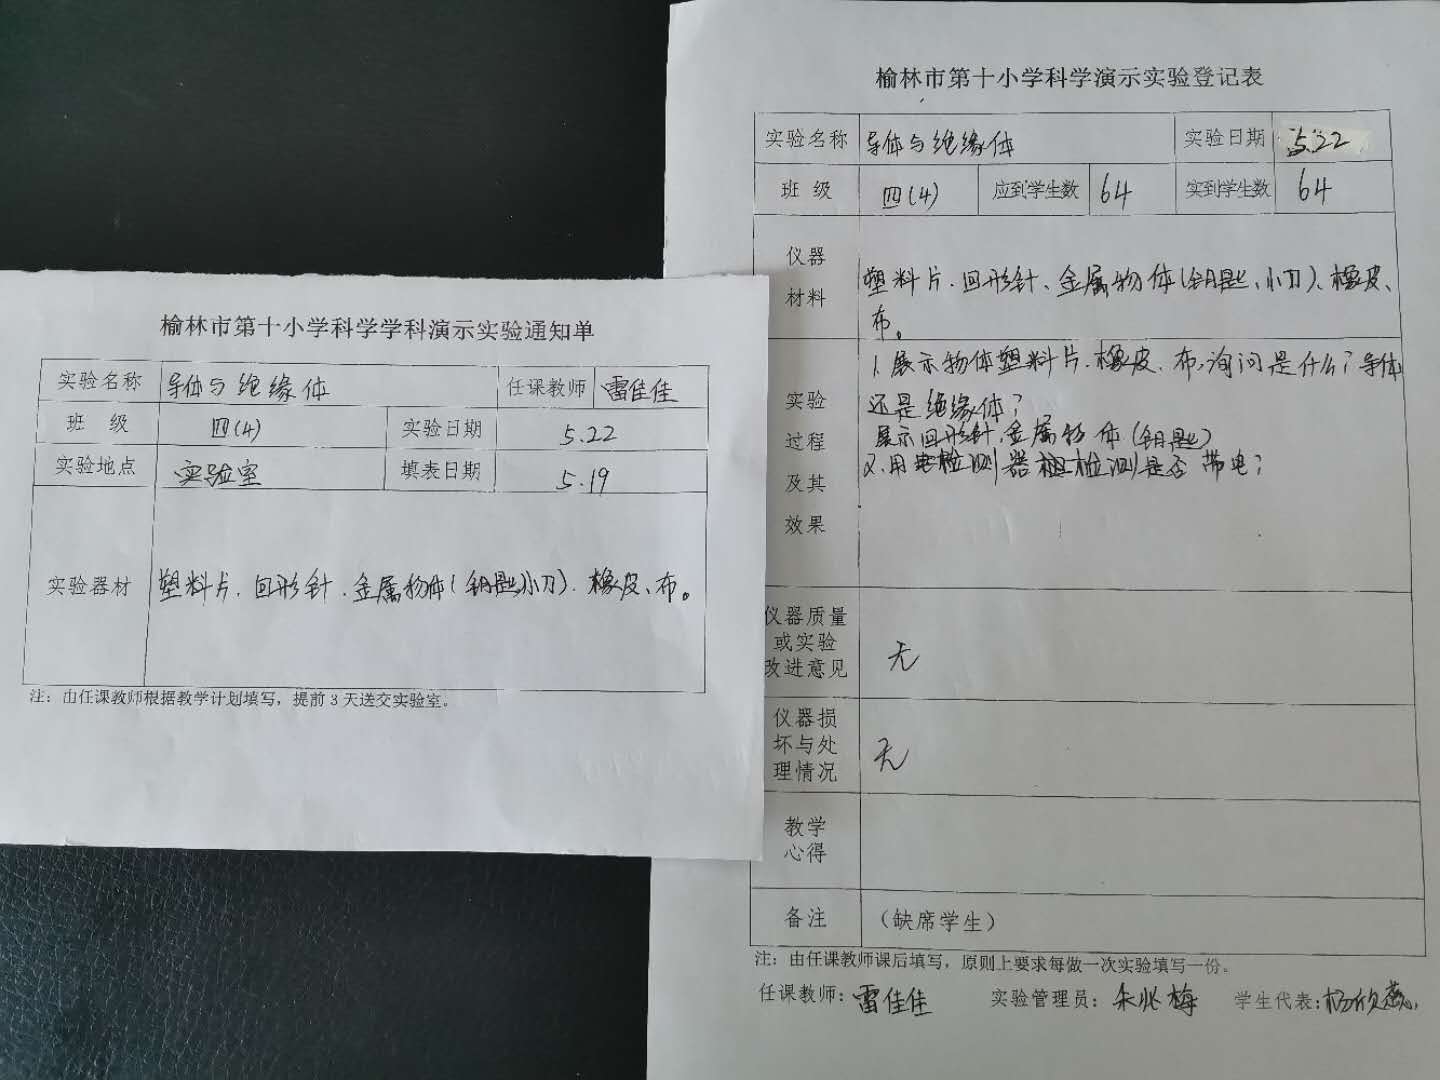 榆林市第十小学科学学科演示实验通知单
实验名称 导体与绝缘体 任课教师 雷佳佳
班 级 四(4) 实验日期 5.22
实验地点 实验室 填表日期 5.19
实验器材 塑料片、回形针、金属物体(钥匙、小刀)、橡皮、布。
注：由任课教师根据教学计划填写，提前3天送交实验室。
榆林市第十小学科学演示实验登记表
实验名称 导体与绝缘体 实验日期 5.22
班 级 四(4) 应到学生数 64 实到学生数 64
仪器
材料
塑料片、回形针、金属物体(钥匙、小刀)、橡皮、
布。
实验
过程
及其
效果
1.展示物体塑料片、橡皮、布,询问是什么?导体
还是绝缘体?
展示回形针,金属物体(钥匙)
2.用检测器检测是否带电?
仪器质量
或实验
改进意见
无
仪器损
坏与处
理情况
无
教学
心得
备注 （缺席学生）
注：由任课教师课后填写，原则上要求每做一次实验填写一份。
任课教师: 雷佳佳 实验管理员: 学生代表: